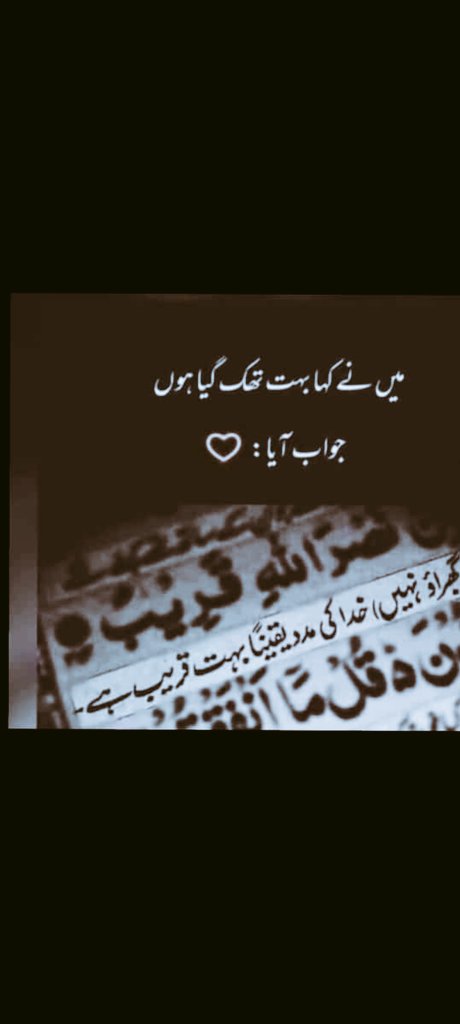 میں نے کہا بہت تھک گیا ہوں
جواب آیا :
نَصْرَ اللّٰهِ قَرِيْبٌ
گھبراؤ نہیں) خدا کی مدد یقیناً بہت قریب ہے۔
قُلْ مَآ اَنْفَقْتُمْ